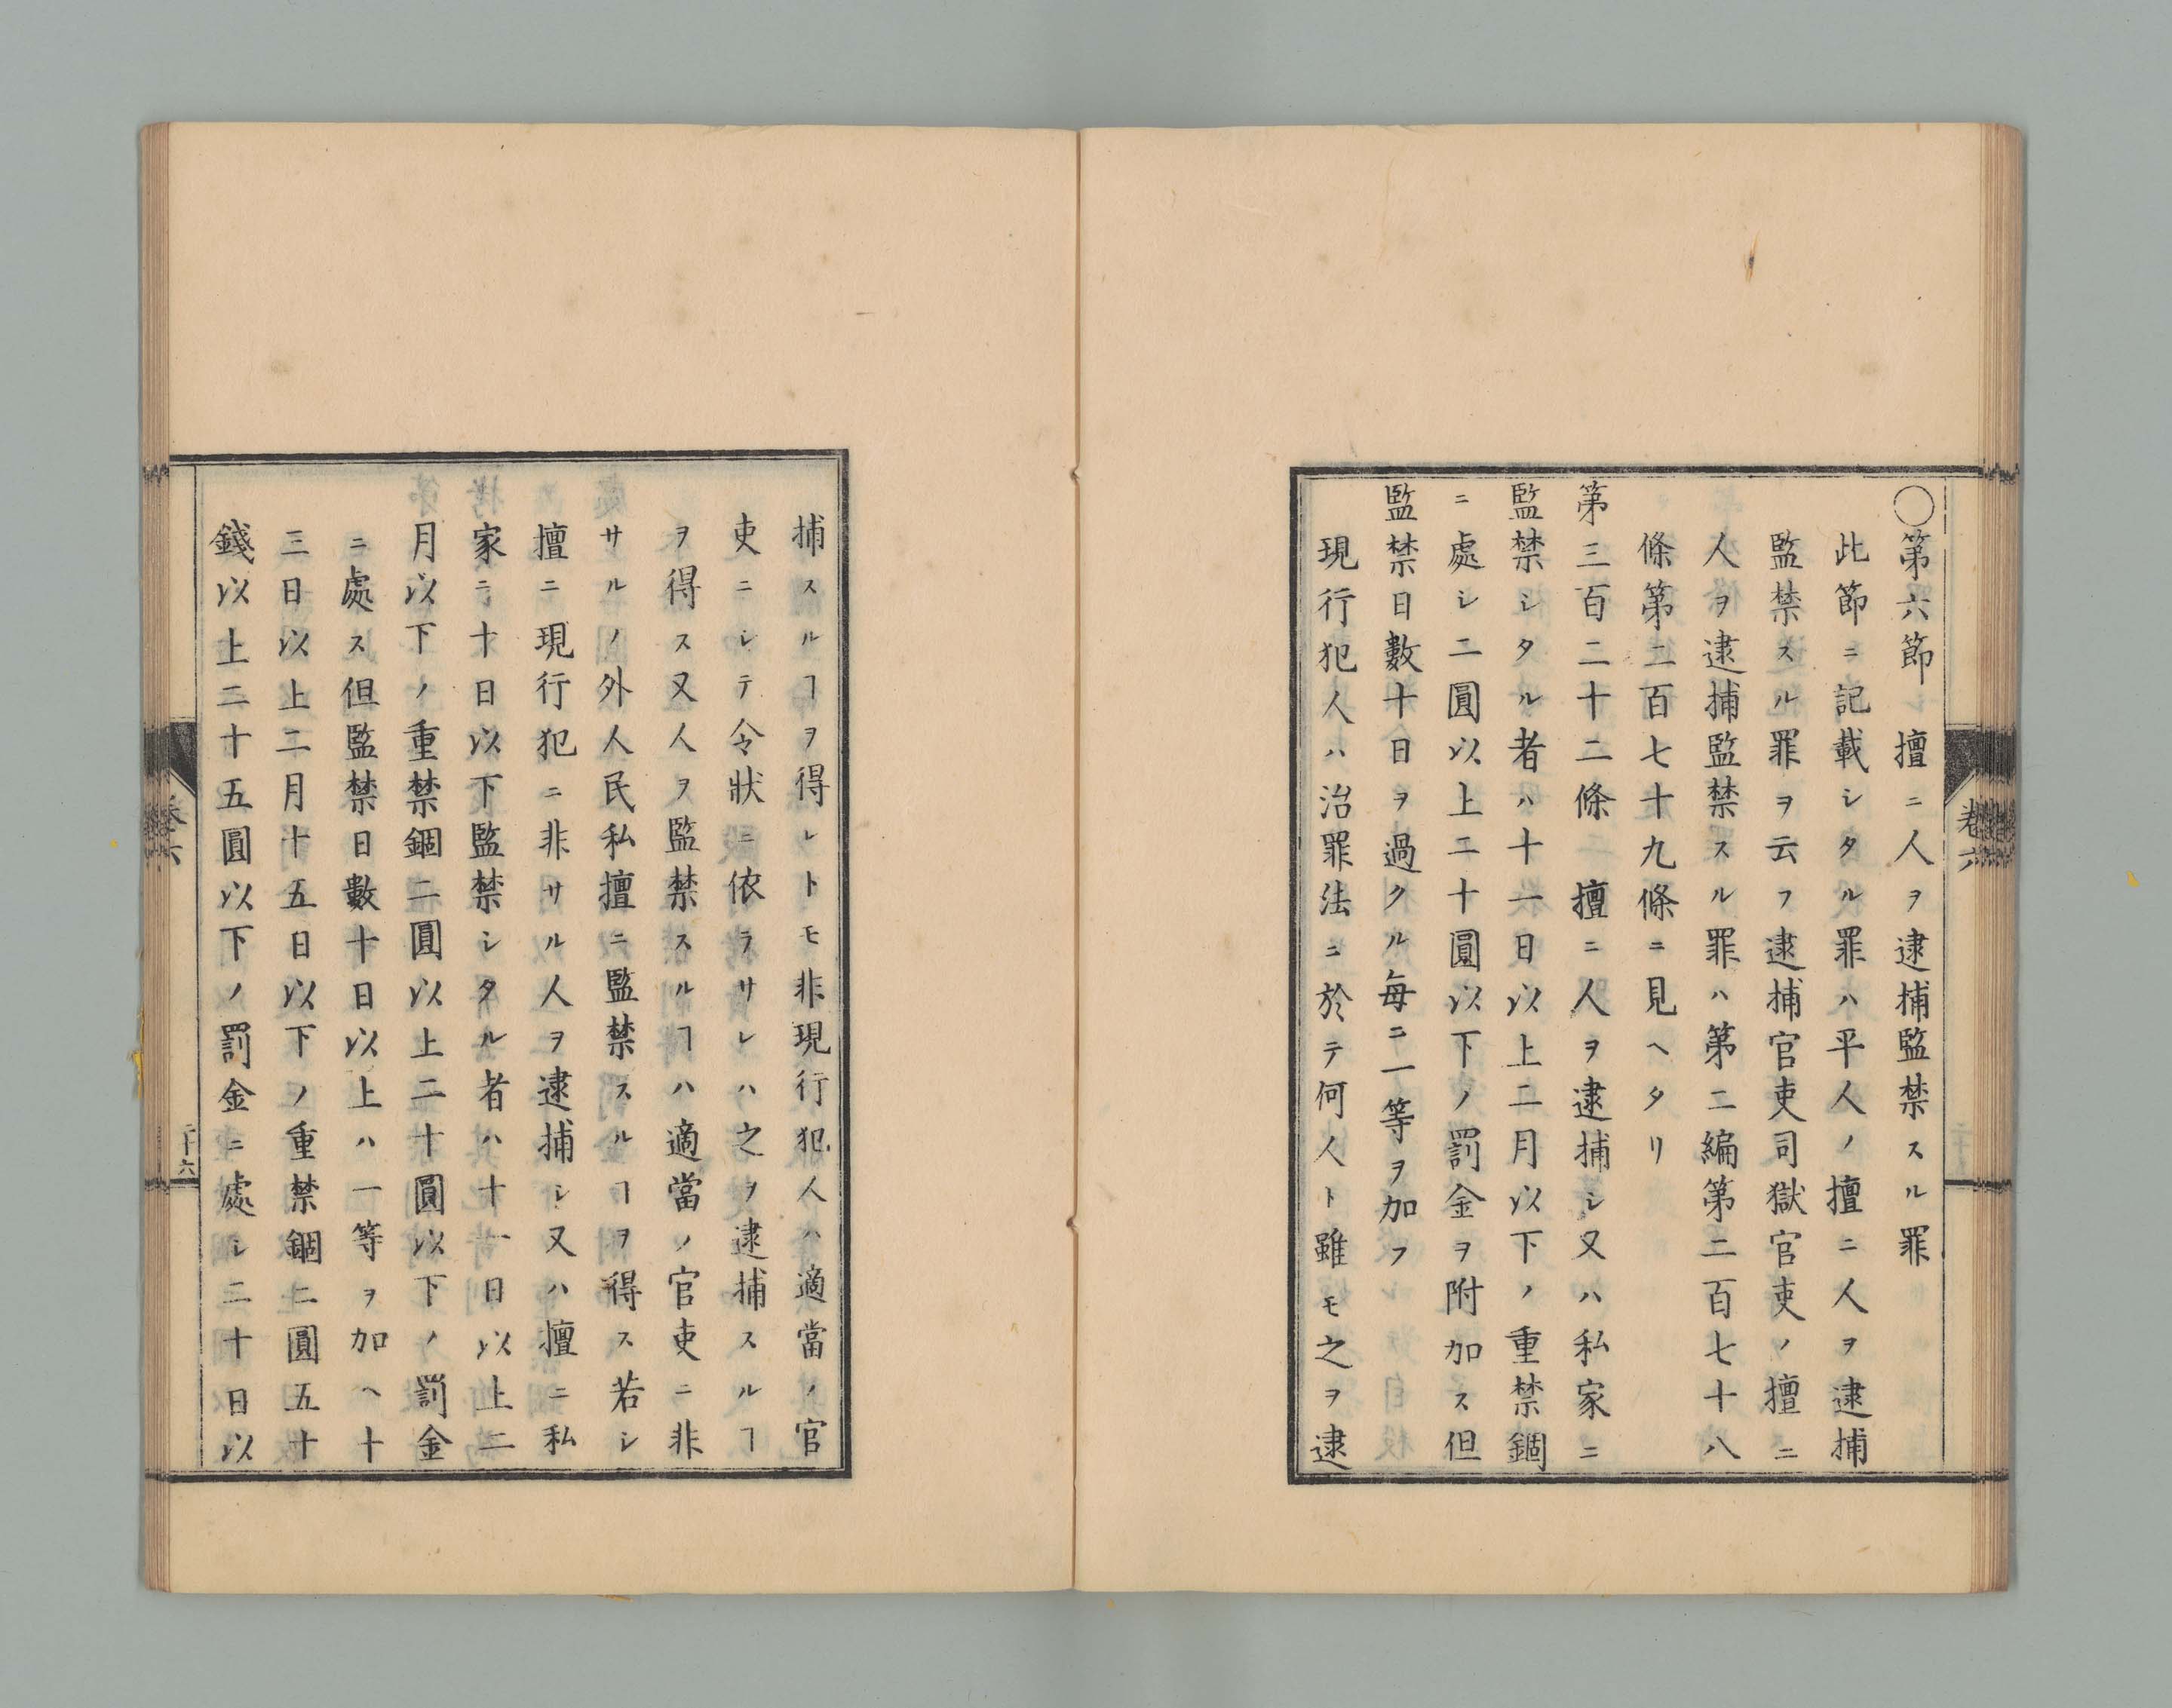 〇第六節 擅ニ人ヲ逮捕監禁スル罪
此節ニ記載シタル罪ハ平人ノ擅ニ人ヲ逮捕
監禁スル罪ヲ云フ逮捕官吏司獄官吏ノ擅ニ
人ヲ逮捕監禁スル罪ハ第二編第二百七十八
條第二百七十九條ニ見ヘタリ
第三百二十二條 擅ニ人ヲ逮捕シ又ハ私家ニ
監禁シタル者ハ十一日以上二月以下ノ重禁錮
ニ處シ二圓以上二十圓以下ノ罰金ヲ附加ス但
監禁日數十日ヲ過クル毎ニ一等ヲ加フ
現行犯人ハ治罪法ニ於テ何人ト雖モ之ヲ逮
卷六
捕スルヿヲ得レトモ非現行犯人ハ適當ノ官
吏ニシテ令狀ニ依ラサレハ之ヲ逮捕スルヿ
ヲ得ス又人ヲ監禁スルヿハ適當ノ官吏ニ非
サルノ外人民私擅ニ監禁スルヿヲ得ス若シ
擅ニ現行犯ニ非サル人ヲ逮捕シ又ハ擅ニ私
家ニ十日以下監禁シタル者ハ十一日以上二
月以下ノ重禁錮二圓以上二十圓以下ノ罰金
ニ處ス但監禁日數十日以上ハ一等ヲ加ヘ十
三日以上二月十五日以下ノ重禁錮二圓五十
錢以上二十五圓以下ノ罰金ニ處シ二十日以
卷六
二十六